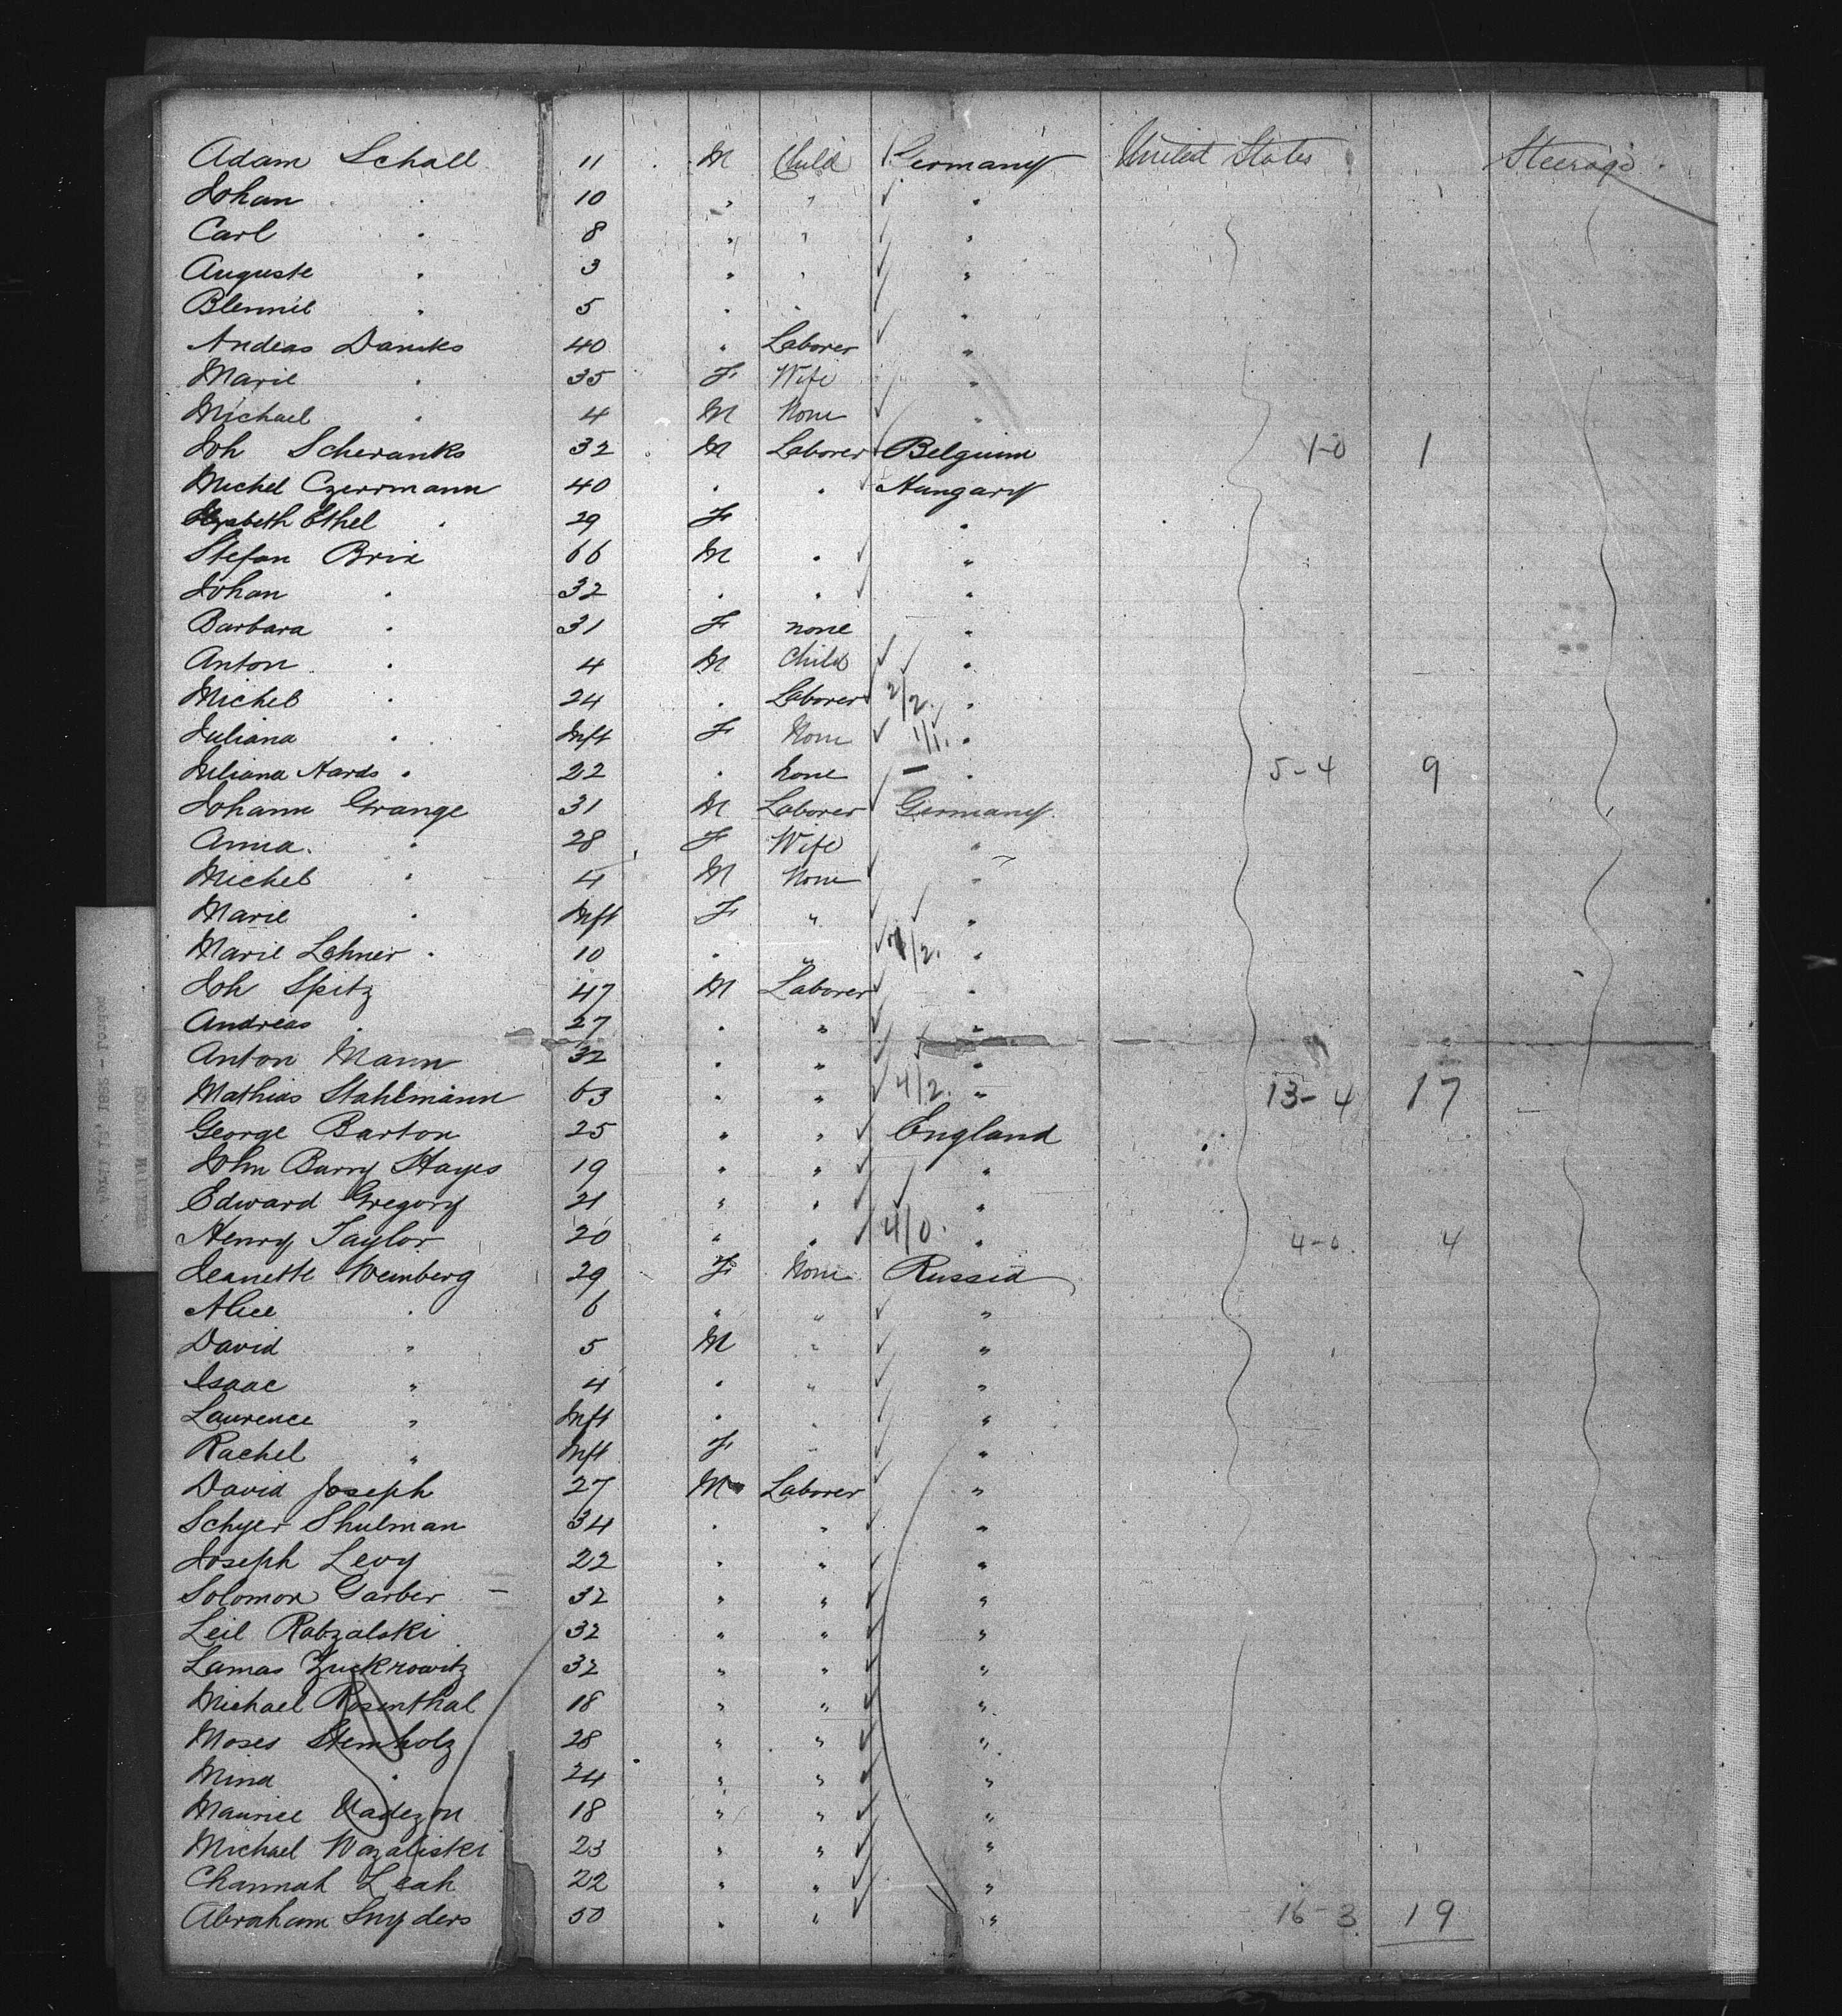 Adam Schall 11 M Child Germany United States Steerage
Johan " 10 " " "
Carl " 8 " " "
Auguste " 3 " " "
Blennie " 5 " " "
Andeas Daniks 40 " Laborer "
Marie " 35 F Wife "
Michael " 4 M None "
Joh Scheranks 32 M Laborer Belgium 1-0 1
Michel Czerrmann 40 " " Hungary
Elizabeth Ethel " 29 F "
Stefan Brix 66 M " "
Johan " 32 " " "
Barbara " 31 F none "
Anton " 4 M Child "
Michel " 24 " Laborer 2/2. "
Juliana " Inft F None 1/1. "
Juliana Hards " 22 " None " 5-4 9
Johann Grange 31 M Laborer Germany
Anna " 28 F Wife "
Michel " 4 M None "
Marie " Inft F " "
Marie Lehner " 10 " " /2. "
Joh Spitz 47 M Laborer "
Andreas " 27 " " "
Anton Mann 32 " " "
Mathias Stahlmann 63 " " 4/2. " 13-4 17
George Barton 25 " " England
John Barry Hayes 19 " " "
Edward Gregory 21 " " "
Henry Taylor 20 " " 4/0. " 4-0 4
Jeanette Weinberg 29 F None Russia
Alice " 6 " " "
David " 5 M " "
Isaac " 4 " " "
Laurence " Inft " " "
Rachel " Inft F " "
David Joseph 27 M Laborer "
Schyer Shulman 34 " " "
Joseph Levy 22 " " "
Solomon Garber 32 " " "
Leil Rabzalski 32 " " "
Lamas Zuckrowitz 32 " " "
Michael Rosenthal 18 " " "
Moses Stemholz 28 " " "
Mina " 24 " " "
Maurice 18 " " "
Michael Wazaliski 23 " " "
Channah Leah 22 " " "
Abraham Snyders 50 " " " 16-3 19